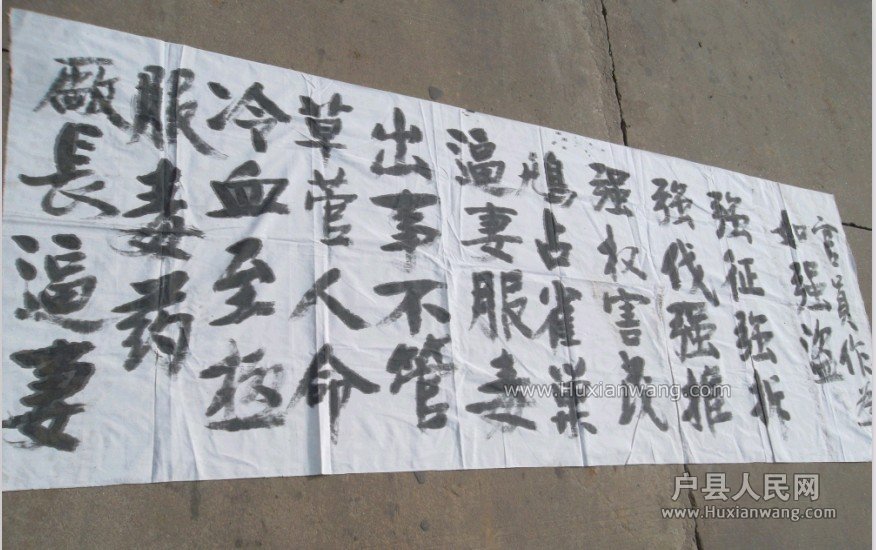 官員作为
如强盗
强征强拆
强伐强推
强权害民
鳩占雀巢
逼妻服毒
出事不管
草菅人命
冷血至極
服毒药
厰長逼妻
www.Huxianwang.com
户县人民网
www.Huxianwang.com